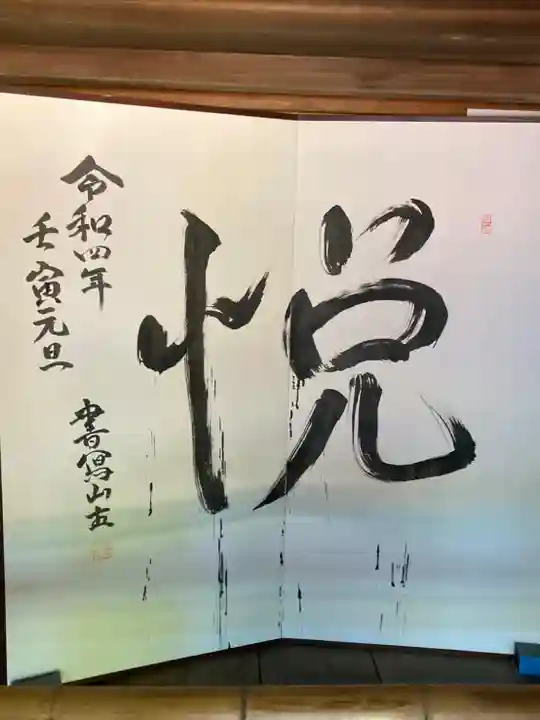 悦
令和四年
壬寅元旦
書寫山主